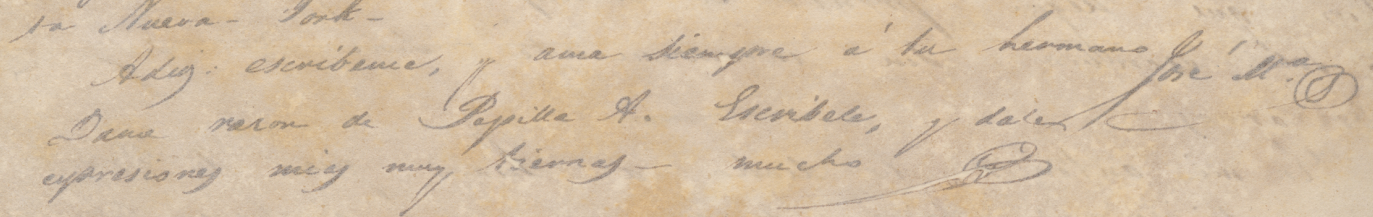 ta Nueva-York-
Adios: escribeme, y ama siempre á tu hermano José Ma.
Dame razon de Pepilla A. Escribele, y dale
expresiones mias muy tiernas- mucho